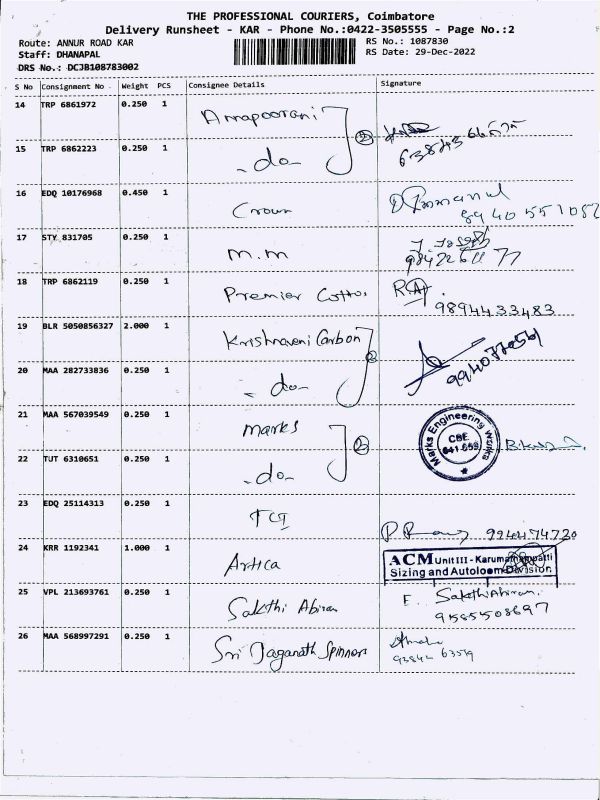 THE PROFESSIONAL COURIERS, Coimbatore
Delivery Runsheet - KAR - Phone No.:0422-3505555 - Page No.:2
Route: ANNUR ROAD KAR RS No.: 1087830
Staff: DHANAPAL RS Date: 29-Dec-2022
DRS No.: DCJB108783002
S No Consignment No Weight PCS Consignee Details Signature
14 TRP 6861972 0.250 1 Annapoorani 2
15 TRP 6862223 0.250 1 -do-
16 EDQ 10176968 0.450 1 Crown
89 40 551052
17 STY 831705 0.250 1 M.M J. Joseph
18 TRP 6862119 0.250 1 Premier Cottos R.A
9894433483
19 BLR 5050856327 2.000 1 Krishnaveni Carbon 2
20 MAA 282733836 0.250 1 -do-
21 MAA 567039549 0.250 1 Marks 2 Marks Engineering Works CBE 641 659
22 TUT 6310651 0.250 1 -do-
23 EDQ 25114313 0.250 1 TCI
9244174720
24 KRR 1192341 1.000 1 Artica ACM Unit III - Karumathampatti
Sizing and Autoloom Division
25 VPL 213693761 0.250 1 Sakthi Abiran E. SakthiAbiram
9585508697
26 MAA 568997291 0.250 1 Sri Jaganath Spinners